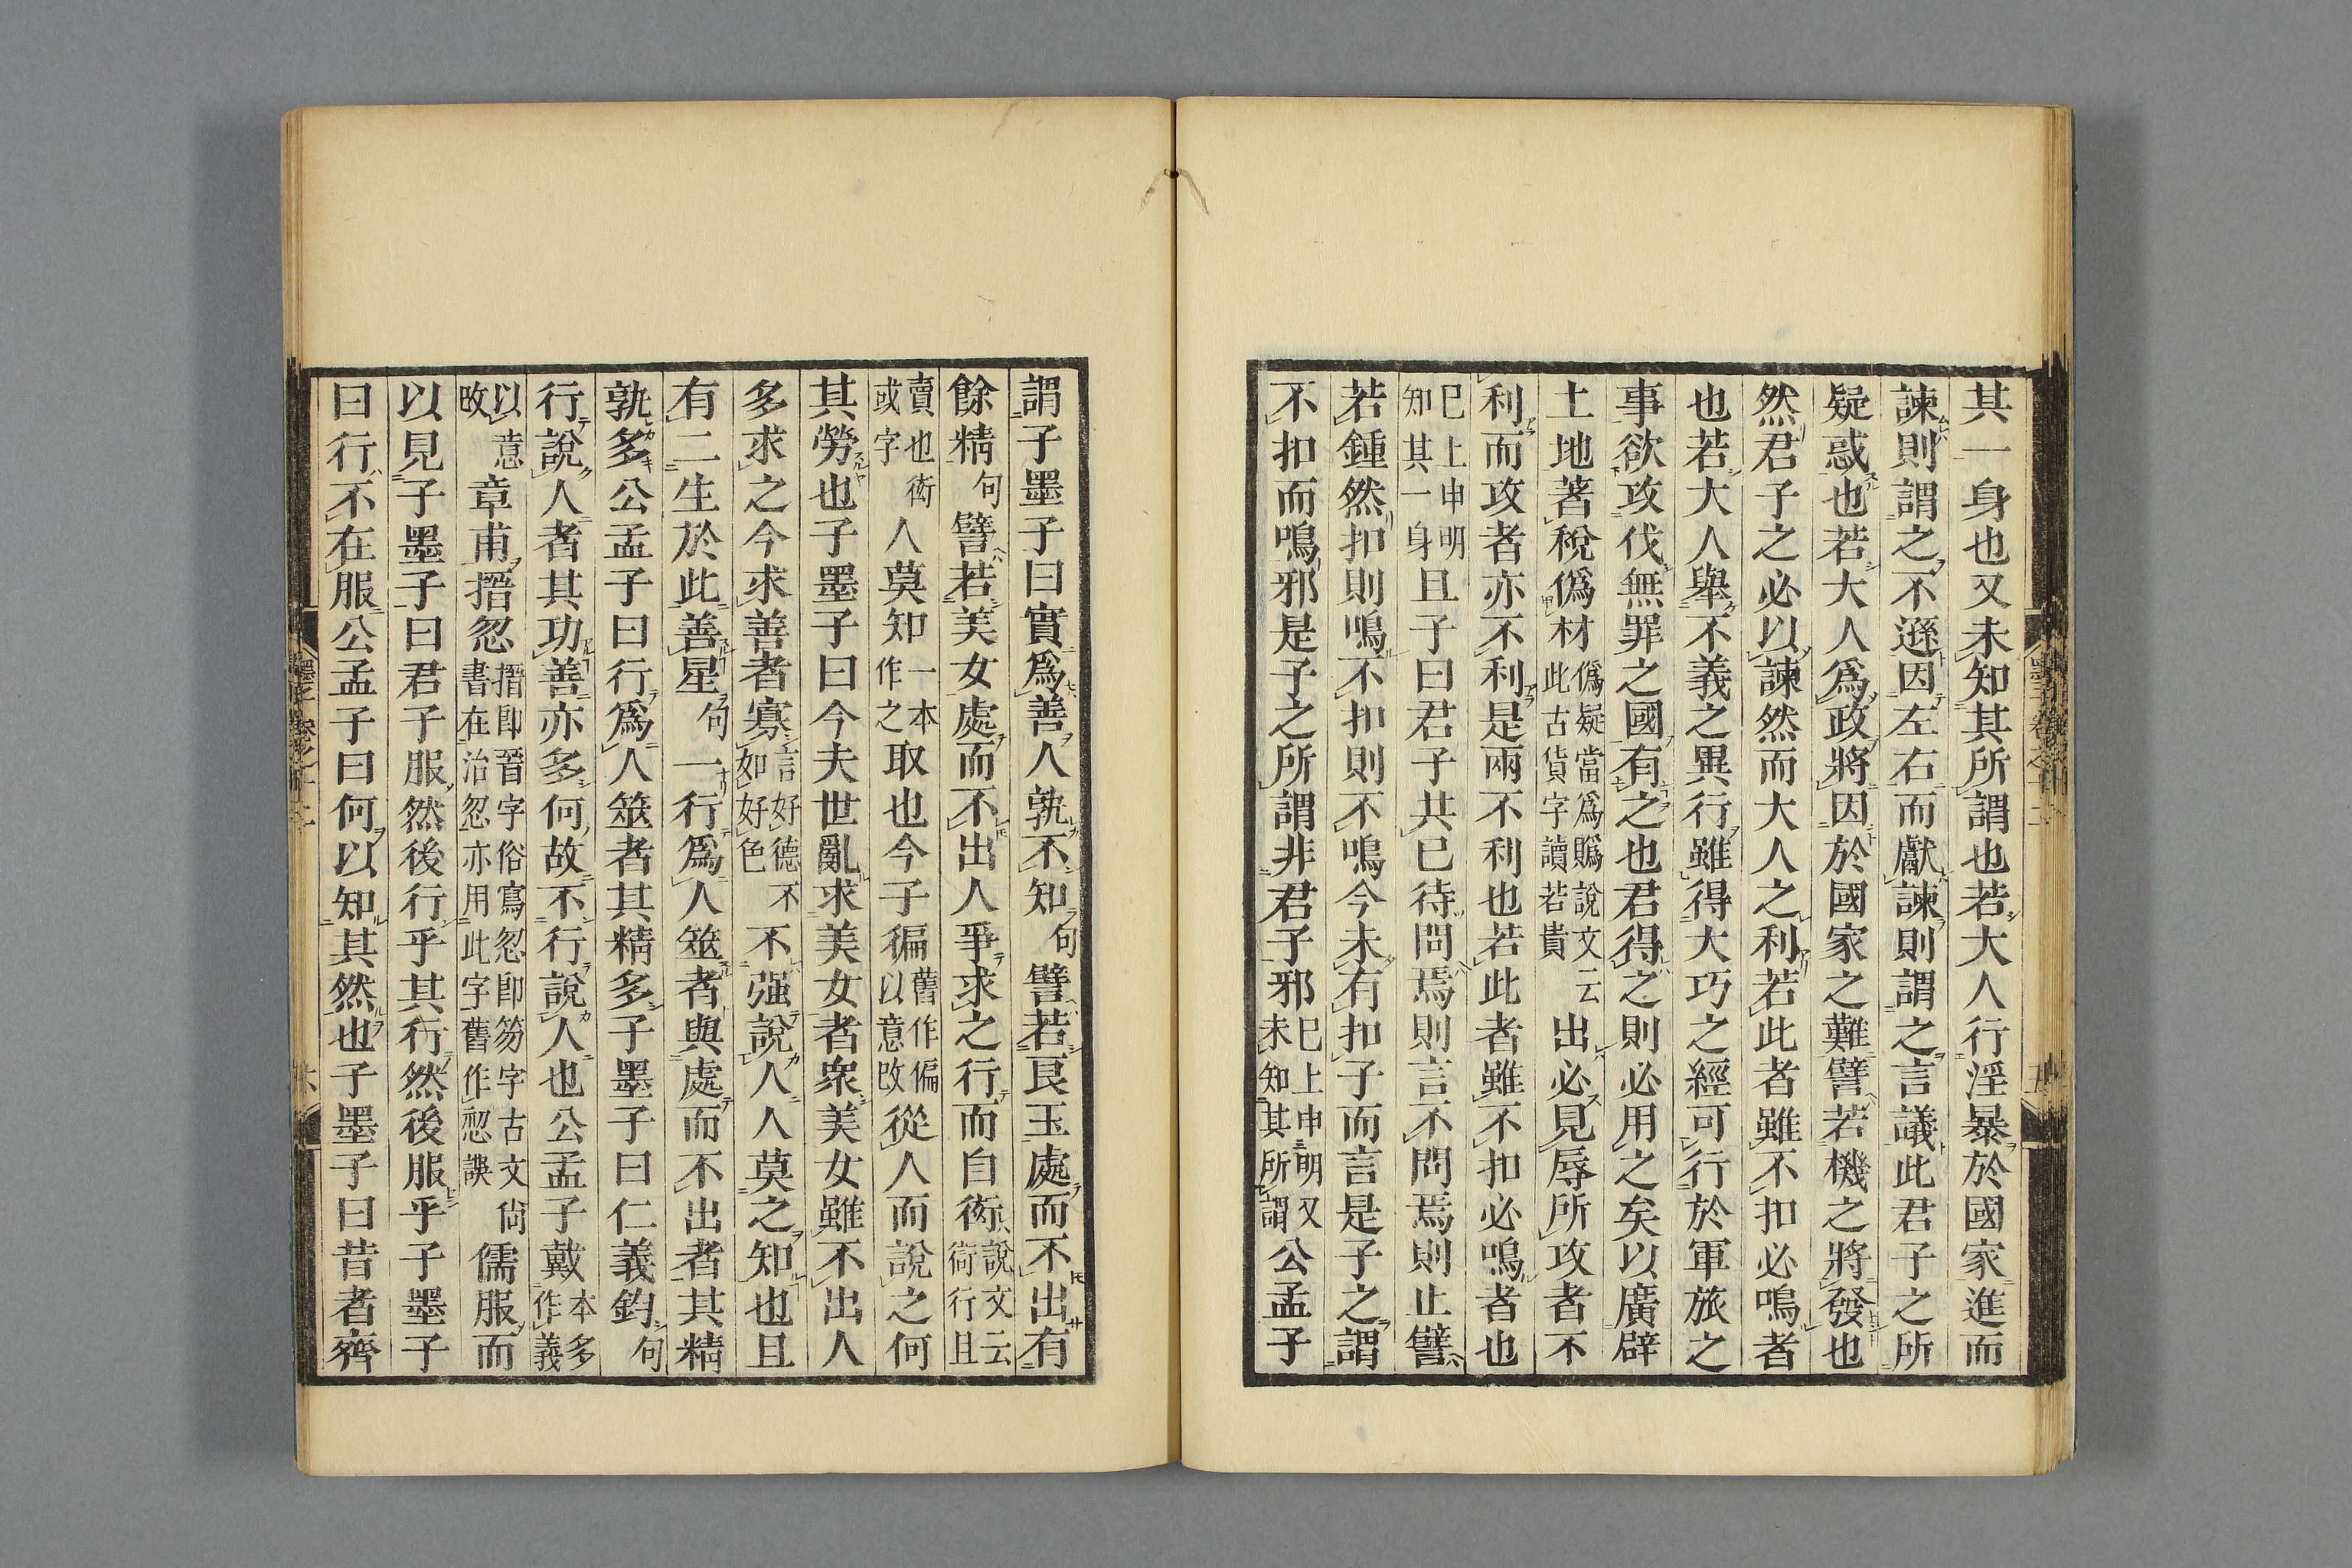 其一身也又未知其所謂也若大人行淫暴於國家進而
諫則謂之不遜因左右而獻諫則謂之言議此君子之所
疑惑也若大人爲政將因於國家之難譬若機之將發也
然君子之必以諫然而大人之利若此者雖不扣必鳴者
也若大人舉不義之異行雖得大巧之經可行於軍旅之
事欲攻伐無罪之國有之也君得之則必用之矣以廣辟
土地著稅僞材僞疑當爲䞈說文云此古貨字讀若貴出必見辱所攻者不
利而攻者亦不利是兩不利也若此者雖不扣必鳴者也
巳上申明知其一身且子曰君子共已待問焉則言不問焉則止譬
若鍾然扣則鳴不扣則不鳴今未有扣子而言是子之謂
不扣而鳴邪是子之所謂非君子邪巳上申明又未知其所謂公孟子
謂子墨子曰實爲善人孰不知句譬若良玉處而不出有
餘精句譬若美女處而不出人爭求之行而自衒說文云衙行且
賣也衒或字人莫知一本作之取也今子徧舊作偏以意改從人而說之何
其勞也子墨子曰今夫世亂求美女者衆美女雖不出人
多求之今求善者寡言好德不如好色不强說人人莫之知也且
有二生於此善星句一行爲人筮者與處而不出者其精
孰多公孟子曰行爲人筮者其精多子墨子曰仁義鈞句
行說人者其功善亦多何故不行說人也公孟子戴本多作義
以意改章甫搢忽搢卽晉字俗寫忽卽笏字古文尙書在治忽亦用此字舊作㤀誤儒服而
以見子墨子曰君子服然後行乎其行然後服乎子墨子
曰行不在服公孟子曰何以知其然也子墨子曰昔者齊